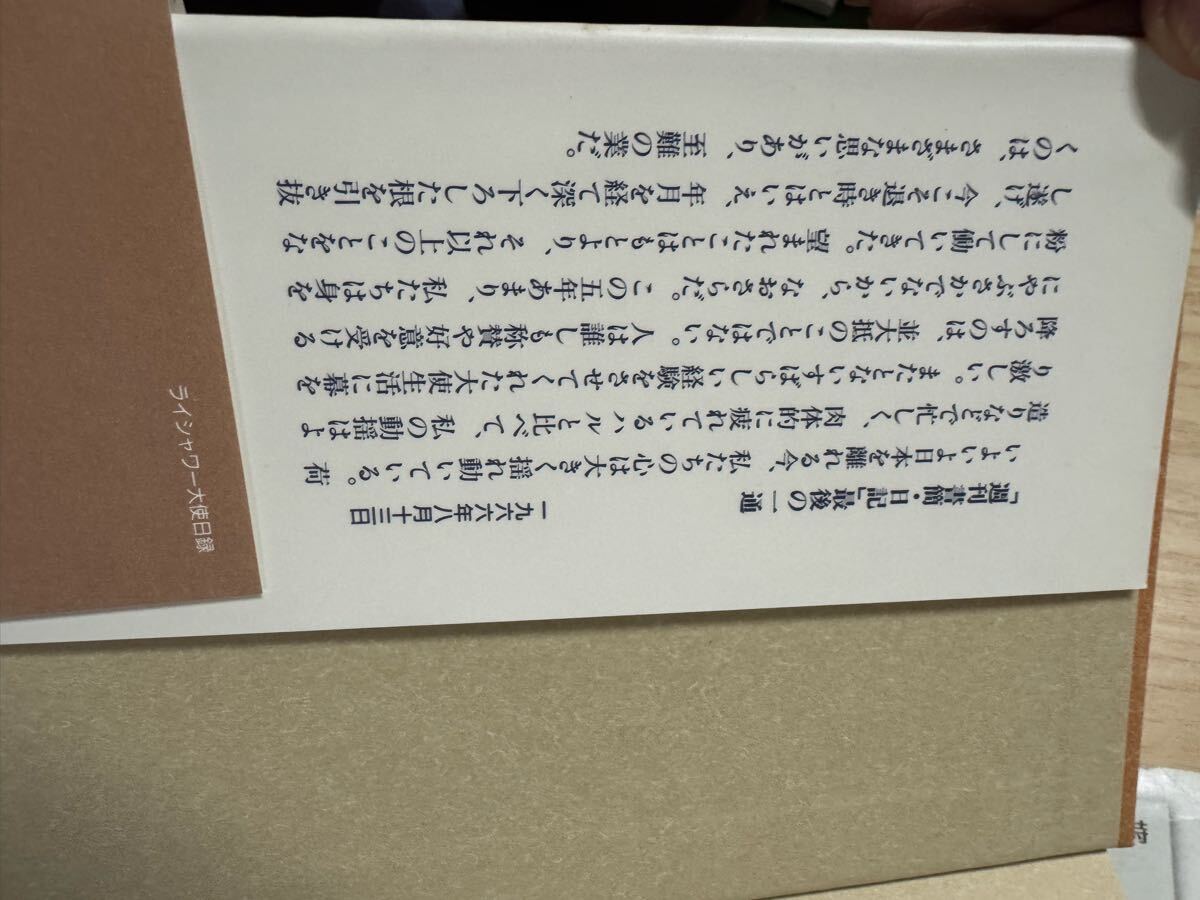 「週刊書簡・日記」最後の一通
一九六六年八月十三日
いよいよ日本を離れる今、私たちの心は大きく揺れ動いている。荷
造りなどで忙しく、肉体的に疲れているハルと比べて、私の動揺はよ
り激しい。またとないすばらしい経験をさせてくれた大使生活に幕を
降ろすのは、並大抵のことではない。人は誰しも称賛や好意を受ける
にやぶさかでないから、なおさらだ。この五年あまり、私たちは身を
粉にして働いてきた。望まれたことはもとより、それ以上のことをな
し遂げ、今こそ退き時とはいえ、年月を経て深く下ろした根を引き抜
くのは、さまざまな思いがあり、至難の業だ。
ライシャワー大使日録